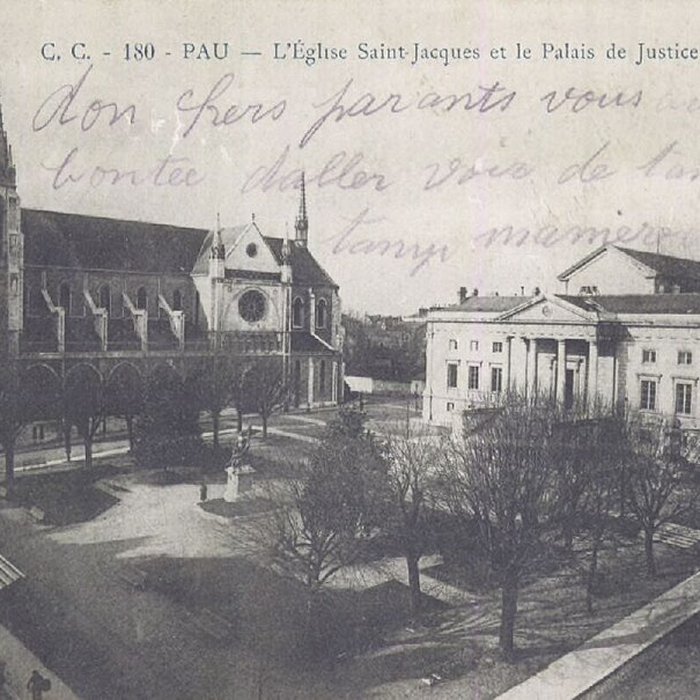 C. C. - 180 - PAU — L'Église Saint-Jacques et le Palais de Justice
don chers parants vous
bontee daller voir de
tamp